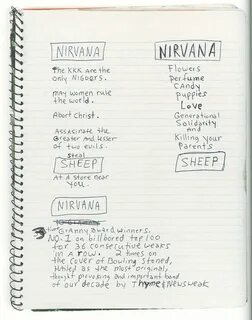 NIRVANA
The KKK are the
only NIGGERS.
may women rule
the world.
Abort Christ.
Assasinate the
Greater and lesser
of two evils.
steal
SHEEP
At A Store near
You.
NIRVANA
Flowers
Perfume
CAndy
puppies
Love
Generational
Solidarity
And
Killing your
Parents
SHEEP
NIRVANA
Granny award winners.
NO. 1 on billbored top 100
for 36 consecutive weaks
in A row. 2 times on
the cover of Bowling Stoned,
Hailed as the most original,
thought provoking and important band
of our decade by Thyme & Newsweak